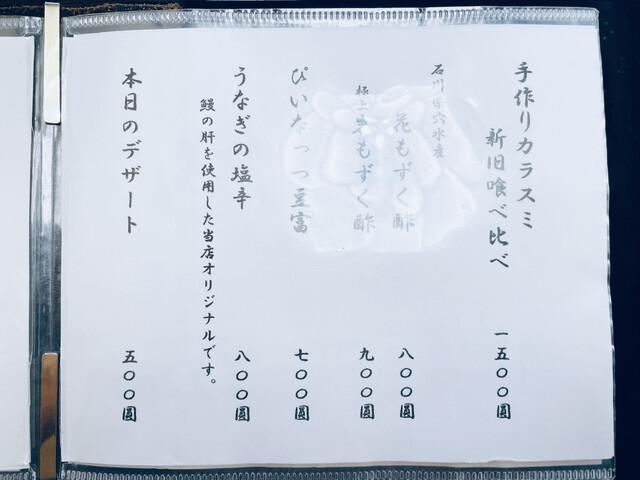 手作りカラスミ
新旧喰べ比べ 一五〇〇圓
石川県穴水産
花もずく酢 八〇〇圓
極上 もずく酢 九〇〇圓
ぴいなっつ豆富 七〇〇圓
うなぎの塩辛 八〇〇圓
鰻の肝を使用した当店オリジナルです。
本日のデザート 五〇〇圓